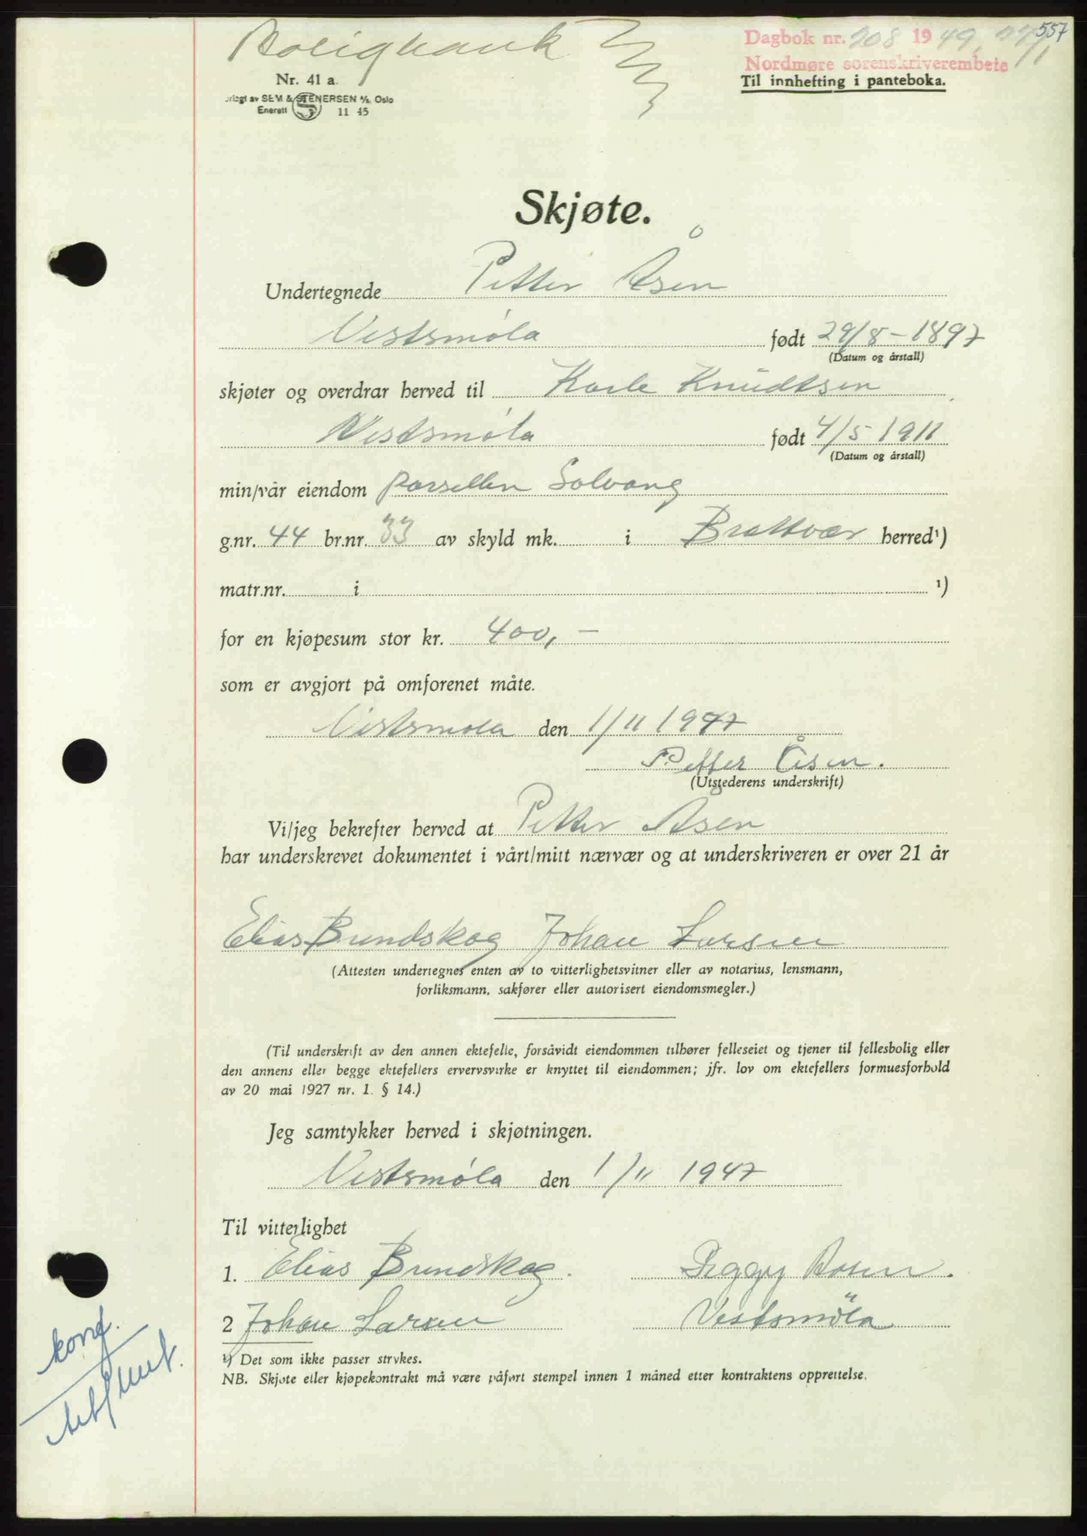 Boligbank
Dagbok nr. 208 1949, 22/1
557
Nordmøre sorenskriverembete
Til innhefting i panteboka.
Nr. 41 a
SEM & STENERSEN A/S, Oslo
Enerett S 11 45
Skjøte.
Undertegnede Petter Åsen
Vestsmøla født 29/8-1897
(Datum og årstall)
skjøter og overdrar herved til Karle Knudtsen
Vestsmøla født 4/5 1911
(Datum og årstall)
min/vår eiendom parsellen Solvang
g.nr. 44 br.nr. 33 av skyld mk. i Brattvær herred¹)
matr.nr. i ¹)
for en kjøpesum stor kr. 400,-
som er avgjort på omforenet måte.
Vestsmøla den 1/11 1947
Petter Åsen.
(Utstederens underskrift)
Vi/jeg bekrefter herved at Petter Åsen
har underskrevet dokumentet i vårt/mitt nærvær og at underskriveren er over 21 år
Elias Bundskog Johan Larsen
(Attesten undertegnes enten av to vitterlighetsvitner eller av notarius, lensmann,
forliksmann, sakfører eller autorisert eiendomsmegler.)
(Til underskrift av den annen ektefelle, forsåvidt eiendommen tilhører felleseiet og tjener til fellesbolig eller
den annens eller begge ektefellers ervervsvirke er knyttet til eiendommen; jfr. lov om ektefellers formuesforhold
av 20 mai 1927 nr. 1. § 14.)
Jeg samtykker herved i skjøtningen.
Vestsmøla den 1/11 1947
Til vitterlighet
1. Elias Bundskog. Peggy Åsen.
2 Johan Larsen Vestsmøla
¹) Det som ikke passer strykes.
NB. Skjøte eller kjøpekontrakt må være påført stempel innen 1 måned etter kontraktens opprettelse.
konf.